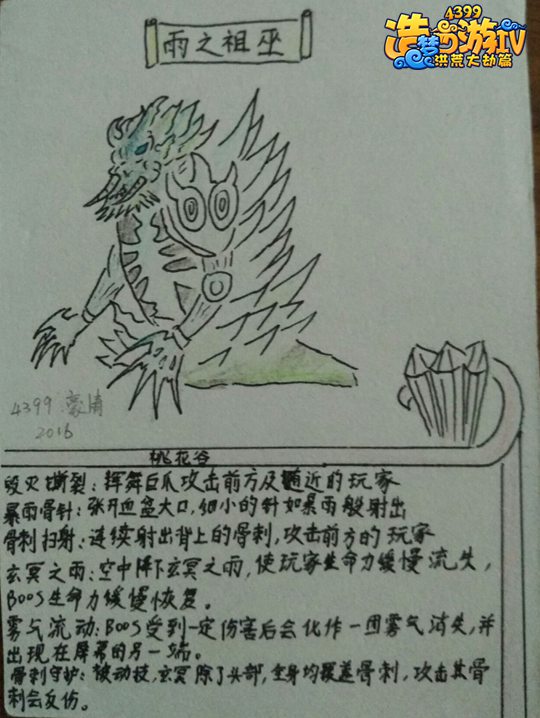 4399
造梦西游IV
洪荒大劫篇
雨之祖巫
4399 豪情
2016
桃花谷
毁灭撕裂：挥舞巨爪攻击前方及附近的玩家
暴雨骨针：张开血盆大口，细小的针如暴雨般射出
骨刺扫射：连续射出背上的骨刺，攻击前方的玩家
玄冥之雨：空中降下玄冥之雨，使玩家生命力缓慢流失，
BOOS生命力缓慢恢复。
雾气流动：BOOS受到一定伤害后会化作一团雾气消失，并
出现在屏幕的另一端。
骨刺守护：被动技，玄冥除了头部，全身均覆盖骨刺，攻击其骨
刺会反伤。